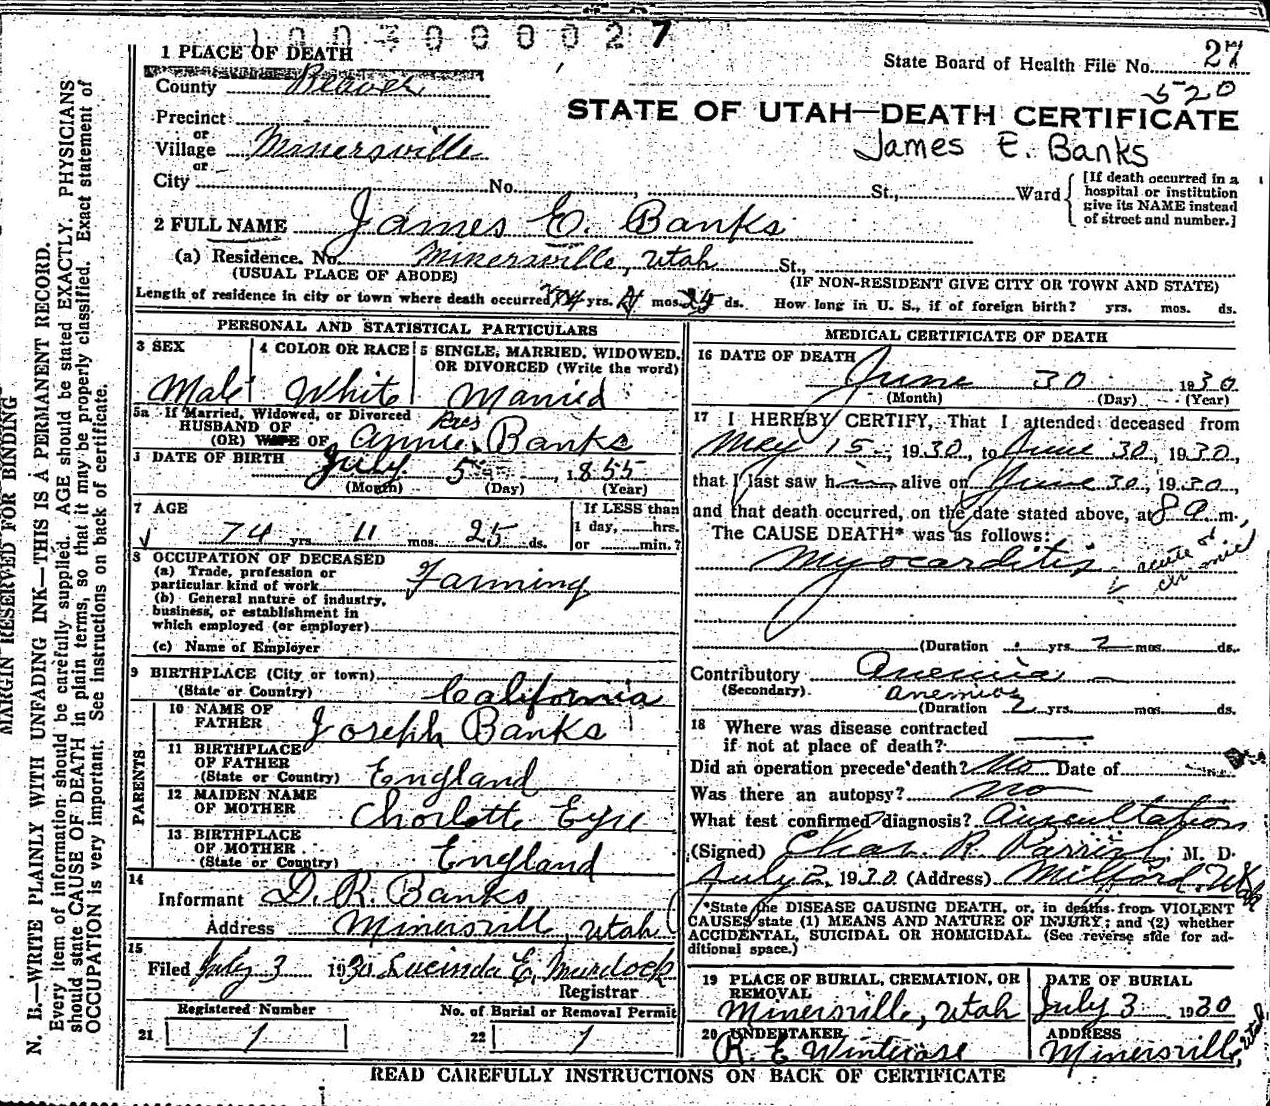 1003000027
1 PLACE OF DEATH
State Board of Health File No. 27
County Beaver
520
STATE OF UTAH—DEATH CERTIFICATE
Precinct
or
Village Minersville
James E. Banks
or
City No. St., Ward
[If death occurred in a hospital or institution give its NAME instead of street and number.]
2 FULL NAME James E. Banks
(a) Residence. No. Minersville, Utah St.,
(USUAL PLACE OF ABODE) (IF NON-RESIDENT GIVE CITY OR TOWN AND STATE)
Length of residence in city or town where death occurred 74 yrs. mos. 25 ds. How long in U. S., if of foreign birth? yrs. mos. ds.
PERSONAL AND STATISTICAL PARTICULARS
3 SEX 4 COLOR OR RACE 5 SINGLE, MARRIED, WIDOWED, OR DIVORCED (Write the word)
Male White Married
5a If Married, Widowed, or Divorced
HUSBAND OF
(OR) WIFE OF Annie Banks
DATE OF BIRTH July 5 1855
(Month) (Day) (Year)
7 AGE If LESS than
74 yrs. 11 mos. 25 ds. 1 day, hrs.
or min.?
8 OCCUPATION OF DECEASED
(a) Trade, profession or
particular kind of work Farming
(b) General nature of industry,
business, or establishment in
which employed (or employer)
(c) Name of Employer
9 BIRTHPLACE (City or town)
(State or Country) California
PARENTS
10 NAME OF
FATHER Joseph Banks
11 BIRTHPLACE
OF FATHER
(State or Country) England
12 MAIDEN NAME
OF MOTHER Charlotte Eyre
13 BIRTHPLACE
OF MOTHER
(State or Country) England
14
Informant D. R. Banks
Address Minersville, Utah
15
Filed July 3 1930 Lucinda E. Murdock
Registrar
Registered Number No. of Burial or Removal Permit
21 1 22 1
MEDICAL CERTIFICATE OF DEATH
16 DATE OF DEATH
June 30 1930
(Month) (Day) (Year)
17 I HEREBY CERTIFY, That I attended deceased from
May 15, 1930, to June 30, 1930,
that I last saw him alive on June 30, 1930,
and that death occurred, on the date stated above, at 8 a m.,
The CAUSE DEATH* was as follows:
Myocarditis
acute or
chronic
(Duration yrs. 2 mos. ds.
Contributory Anemia
(Secondary) anemia
(Duration 2 yrs. mos. ds.
18 Where was disease contracted
if not at place of death?
Did an operation precede death? No Date of
Was there an autopsy? No
What test confirmed diagnosis? Auscultation
(Signed) Chas. R. Parrish, M. D.
July 2, 1930 (Address) Milford, Utah
*State the DISEASE CAUSING DEATH, or, in deaths from VIOLENT
CAUSES state (1) MEANS AND NATURE OF INJURY; and (2) whether
ACCIDENTAL, SUICIDAL OR HOMICIDAL. (See reverse side for ad-
ditional space.)
19 PLACE OF BURIAL, CREMATION, OR DATE OF BURIAL
REMOVAL
Minersville, Utah July 3 1930
20 UNDERTAKER ADDRESS
R. E. Winterose Minersville, Utah
READ CAREFULLY INSTRUCTIONS ON BACK OF CERTIFICATE
MARGIN RESERVED FOR BINDING
N. B.—WRITE PLAINLY WITH UNFADING INK—THIS IS A PERMANENT RECORD.
Every item of information should be carefully supplied. AGE should be stated EXACTLY. PHYSICIANS
should state CAUSE OF DEATH in plain terms, so that it may be properly classified. Exact statement of
OCCUPATION is very important. See instructions on back of certificate.